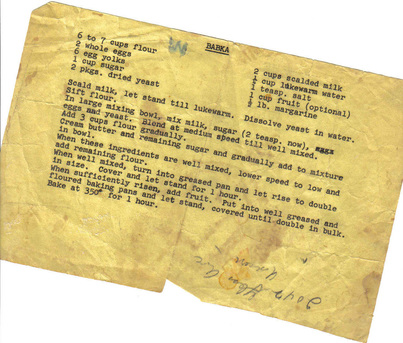 BABKA
6 to 7 cups flour
2 whole eggs
6 egg yolks
1 cup sugar
2 pkgs. dried yeast
2 cups scalded milk
cup lukewarm water
1 teasp. salt
1 cup fruit (optional)
lb. margarine
Dissolve yeast in water.
Scald milk, let stand till lukewarm.
Sift flour.
In large mixing bowl, mix milk, sugar (2 teasp. now),
eggs and yeast. Blend at medium speed till well mixed.
Add 3 cups flour gradually.
Cream butter and remaining sugar and gradually add to mixture
in bowl.
When these ingredients are well mixed, lower speed to low and
add remaining flour.
When well mixed, turn into greased pan and let rise to double
in size. Cover and let stand for 1 hour.
When sufficiently risen, add fruit. Put into well greased and
floured baking pans and let stand, covered until double in bulk.
Bake at 350° for 1 hour.